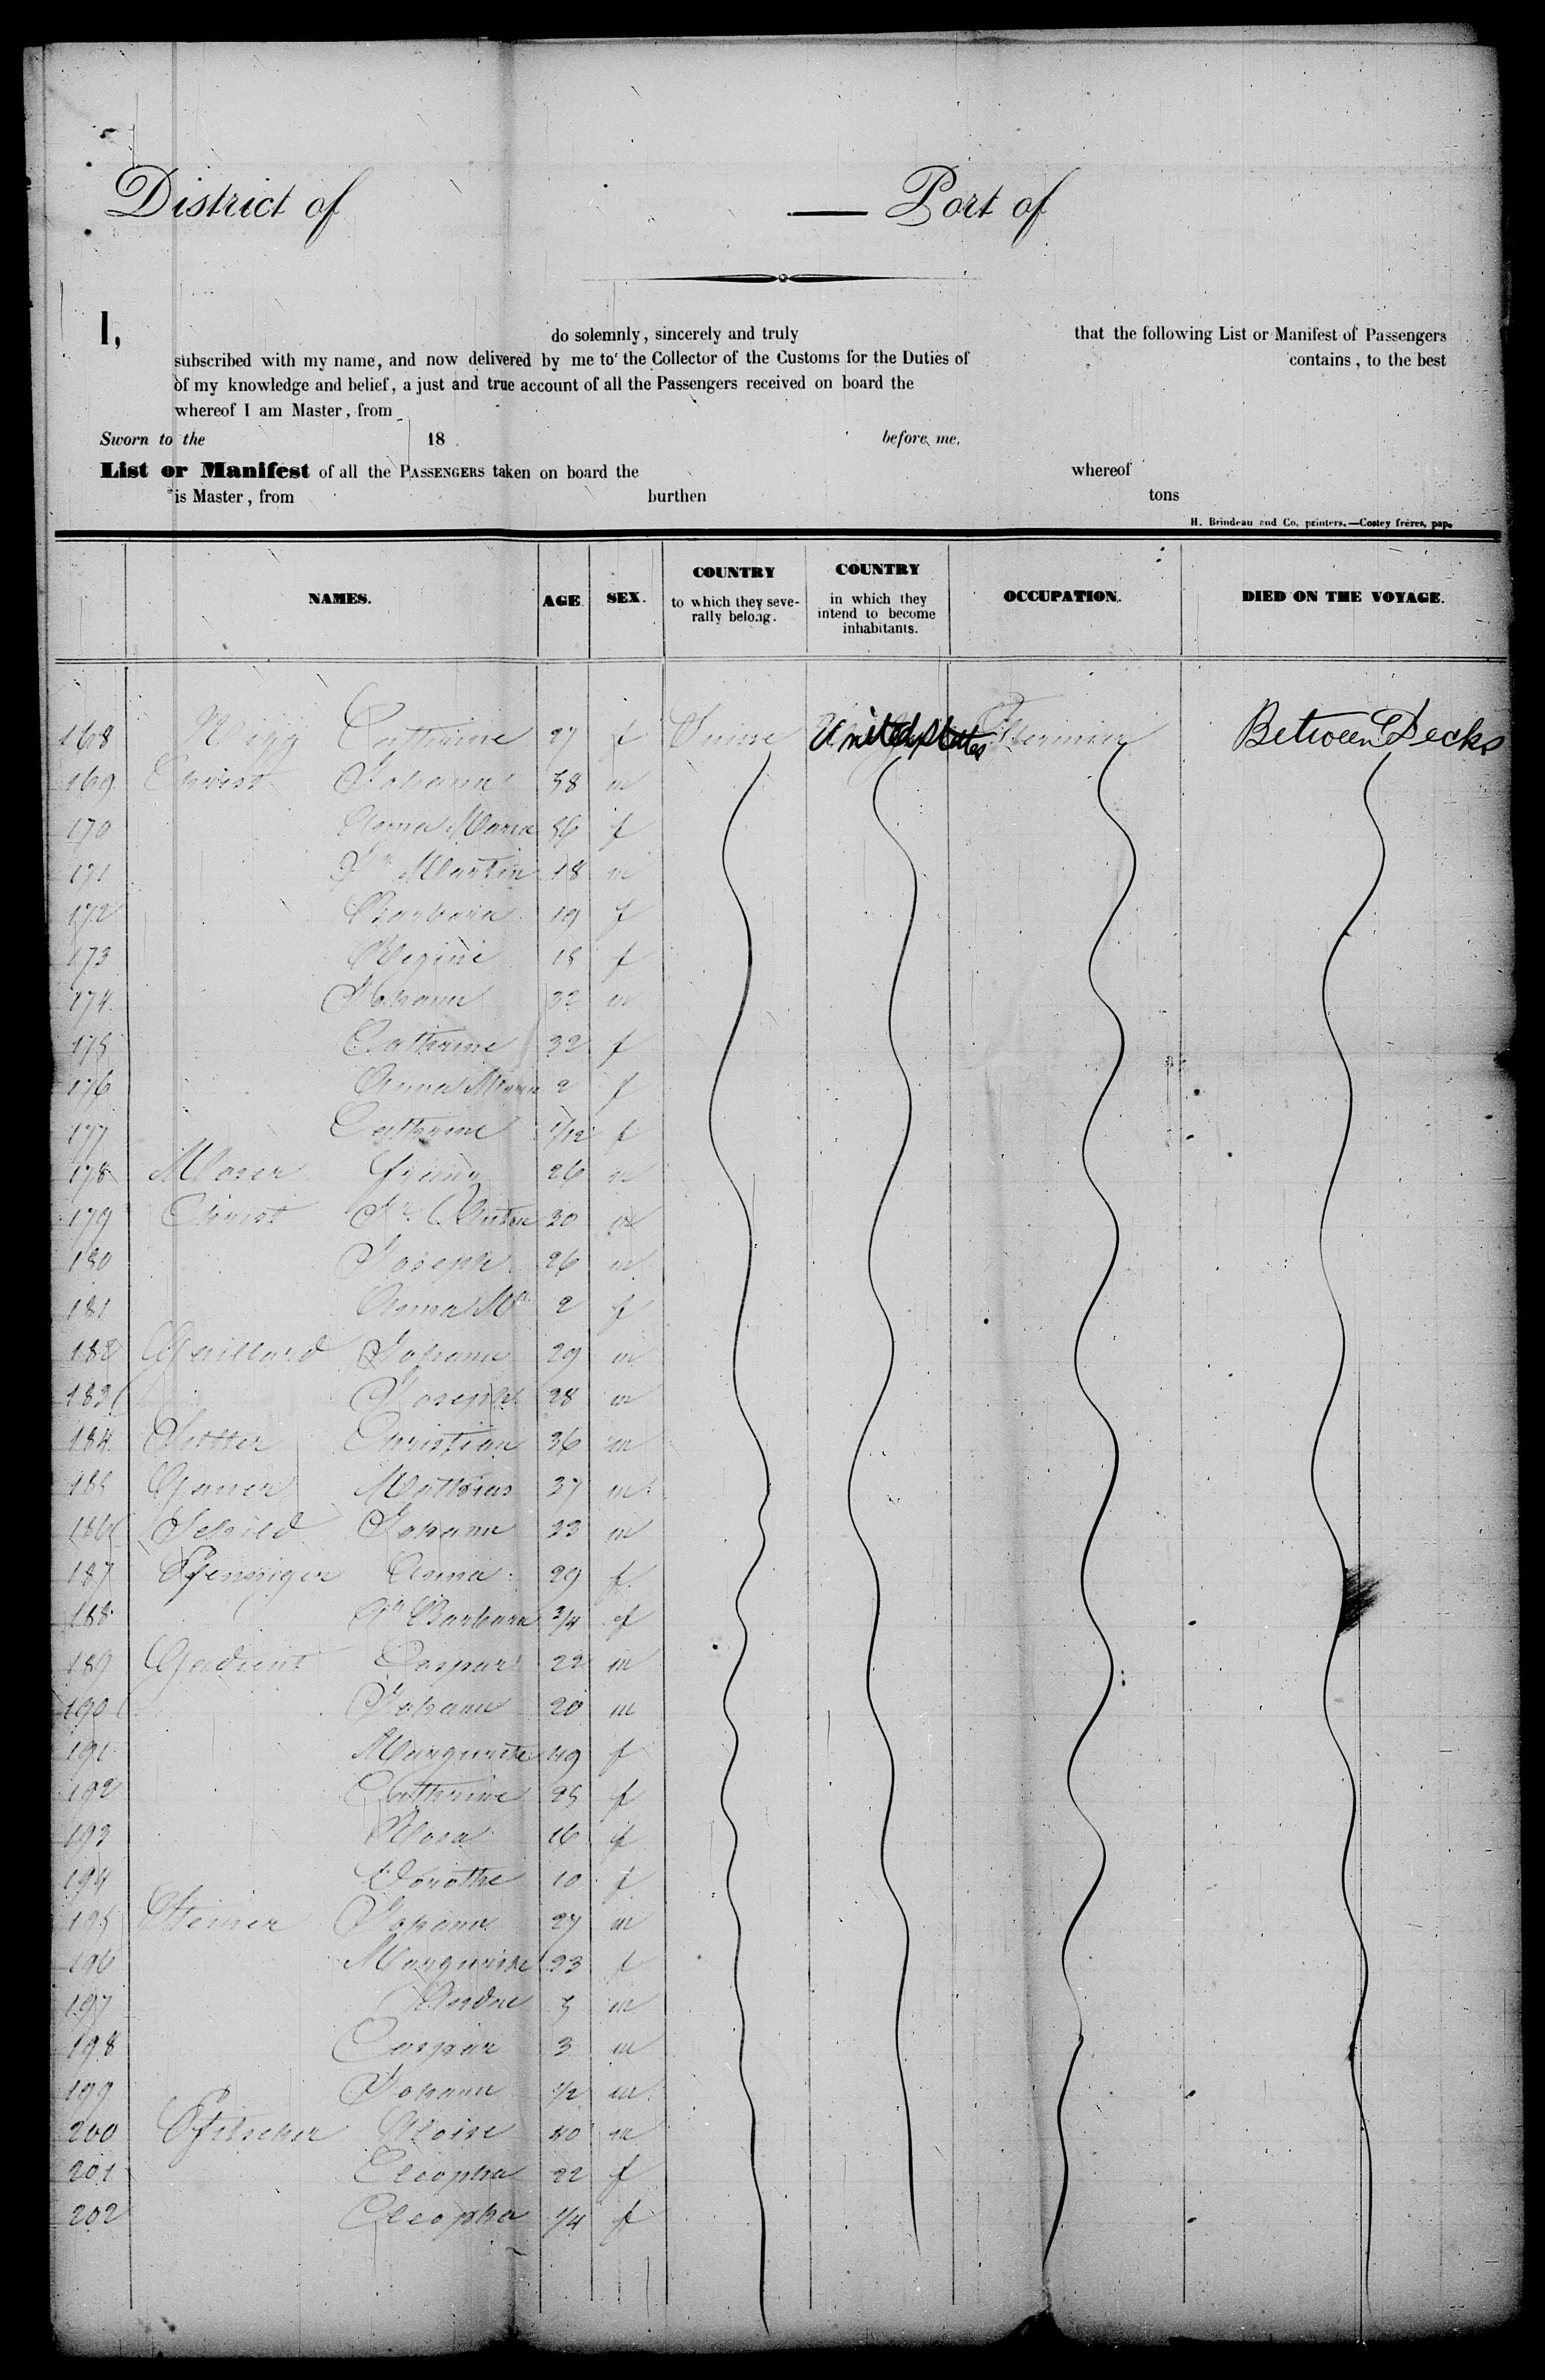 District of — Port of
I, do solemnly, sincerely and truly that the following List or Manifest of Passengers
subscribed with my name, and now delivered by me to the Collector of the Customs for the Duties of contains, to the best
of my knowledge and belief, a just and true account of all the Passengers received on board the
whereof I am Master, from
Sworn to the 18 before me,
List or Manifest of all the PASSENGERS taken on board the whereof
is Master, from burthen tons
H. Brindeau and Co. printers.—Costey frères, pap.
NAMES. AGE. SEX. COUNTRY to which they severally belong. COUNTRY in which they intend to become inhabitants. OCCUPATION. DIED ON THE VOYAGE.
168 Cathrine 27 f Suisse United states Between Decks
169 Christ Johann 58 m
170 Anna Maria 56 f
171 Martin 18 m
172 Barbara 19 f
173 Regine 18 f
174 Johann 32 m
175 Cathrine 32 f
176 Anna Maria 2 f
177 Cathrine 1/12 f
178 Moser 26 m
179 Christ 30 m
180 Joseph 26 m
181 Anna Ma 2 f
182 Gaillard Johann 29 m
183 Joseph 28 m
184 Christian 36 m
185 Mathias 37 m
186 Schild Johann 23 m
187 Pfenniger Anna 29 f
188 Barbara 3/4 f
189 Gadient Caspar 22 m
190 Johann 20 m
191 Margurete 49 f
192 Cathrine 25 f
193 Rosa 16 f
194 Dorothe 10 f
195 Steiner Johann 27 m
196 Margurite 23 f
197 5 m
198 Caspar 3 m
199 Johann 1/2 m
200 Aloise 40 m
201 Cleopha 22 f
202 Cleopha 1/4 f